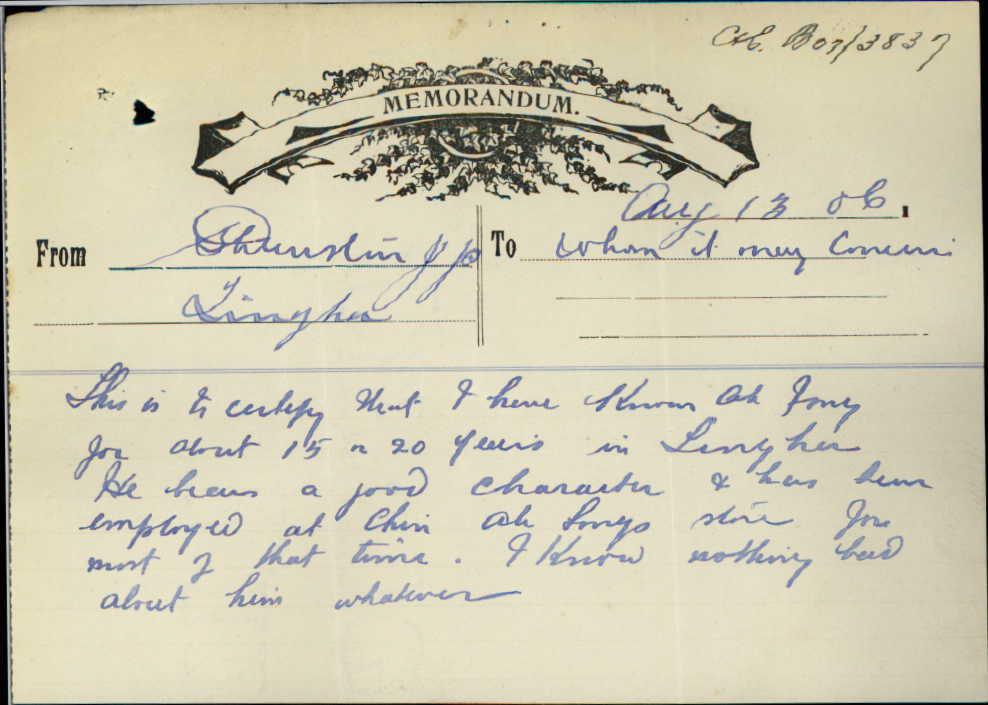 C & E. B 07/3837
MEMORANDUM.
Aug 13 06.
From
To Whom it may Concern
Tingha
This is to certify that I have Known Ah Fong
for about 15 or 20 years in Tingha
He bears a good character & has been
employed at Chin Ah Longs store for
most of that time. I Know nothing bad
about him whatever